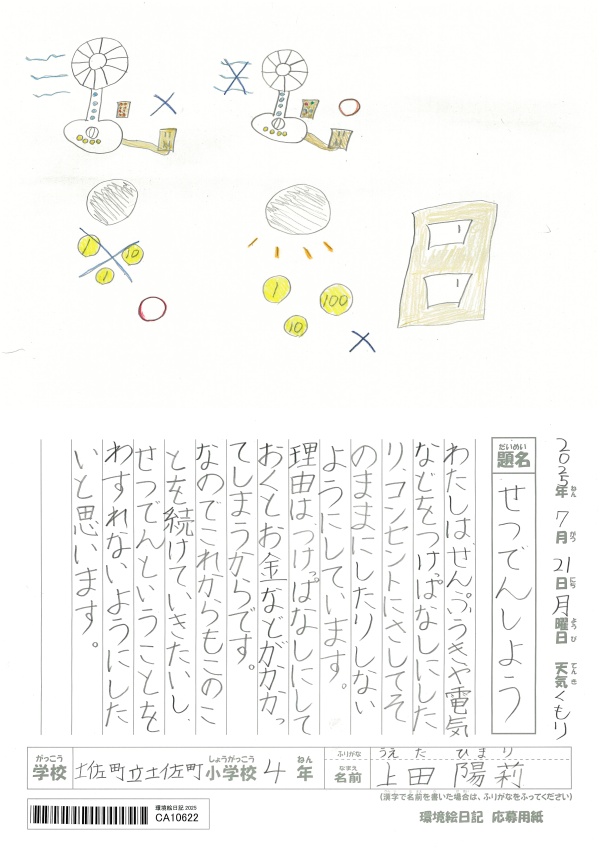 1
10
1
1
100
10
2025年ねん 7月がつ 21日にち 月曜日ようび 天気てんき くもり
題名だいめい
せつでんしよう
わたしは、せんぷうきや電気
などをつけっぱなしにした
り、コンセントにさしてそ
のままにしたりしない
ようにしています。
理由は、つけっぱなしにして
おくとお金などがかかっ
てしまうからです。
なのでこれからもこのこ
とを続けていきたいし、
せつでんということを
わすれないようにした
いと思います。
がっこう しょうがっこう ねん
学校 土佐町立土佐町小学校 4年
ふりがな うえ た ひ まり
なまえ
名前 上田 陽莉
(漢字で名前を書いた場合は、ふりがなをふってください)
環境絵日記 2025
CA10622
環境絵日記 応募用紙